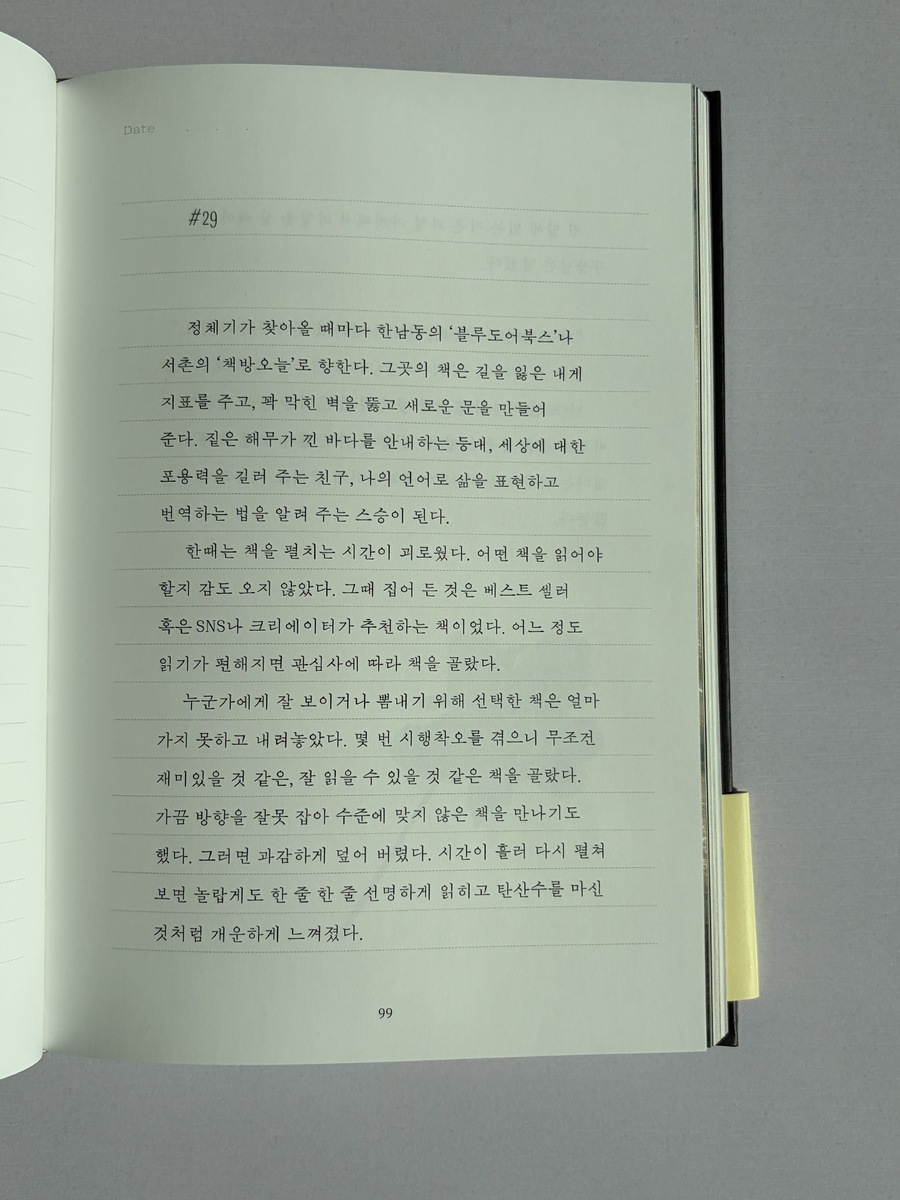 Date . . .
#29
정체기가 찾아올 때마다 한남동의 ‘블루도어북스’나
서촌의 ‘책방오늘’로 향한다. 그곳의 책은 길을 잃은 내게
지표를 주고, 꽉 막힌 벽을 뚫고 새로운 문을 만들어
준다. 짙은 해무가 낀 바다를 안내하는 등대, 세상에 대한
포용력을 길러 주는 친구, 나의 언어로 삶을 표현하고
번역하는 법을 알려 주는 스승이 된다.
한때는 책을 펼치는 시간이 괴로웠다. 어떤 책을 읽어야
할지 감도 오지 않았다. 그때 집어 든 것은 베스트 셀러
혹은 SNS나 크리에이터가 추천하는 책이었다. 어느 정도
읽기가 편해지면 관심사에 따라 책을 골랐다.
누군가에게 잘 보이거나 뽐내기 위해 선택한 책은 얼마
가지 못하고 내려놓았다. 몇 번 시행착오를 겪으니 무조건
재미있을 것 같은, 잘 읽을 수 있을 것 같은 책을 골랐다.
가끔 방향을 잘못 잡아 수준에 맞지 않은 책을 만나기도
했다. 그러면 과감하게 덮어 버렸다. 시간이 흘러 다시 펼쳐
보면 놀랍게도 한 줄 한 줄 선명하게 읽히고 탄산수를 마신
것처럼 개운하게 느껴졌다.
99